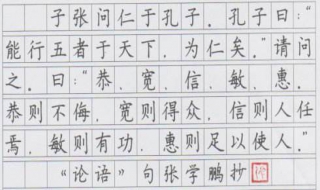 子张问仁于孔子。孔子曰:“
能行五者于天下,为仁矣。”请问
之。曰:“恭、宽、信、敏、惠。
恭则不侮,宽则得众,信则人任
焉,敏则有功,惠则足以使人。”
《论语》句张学鹏抄